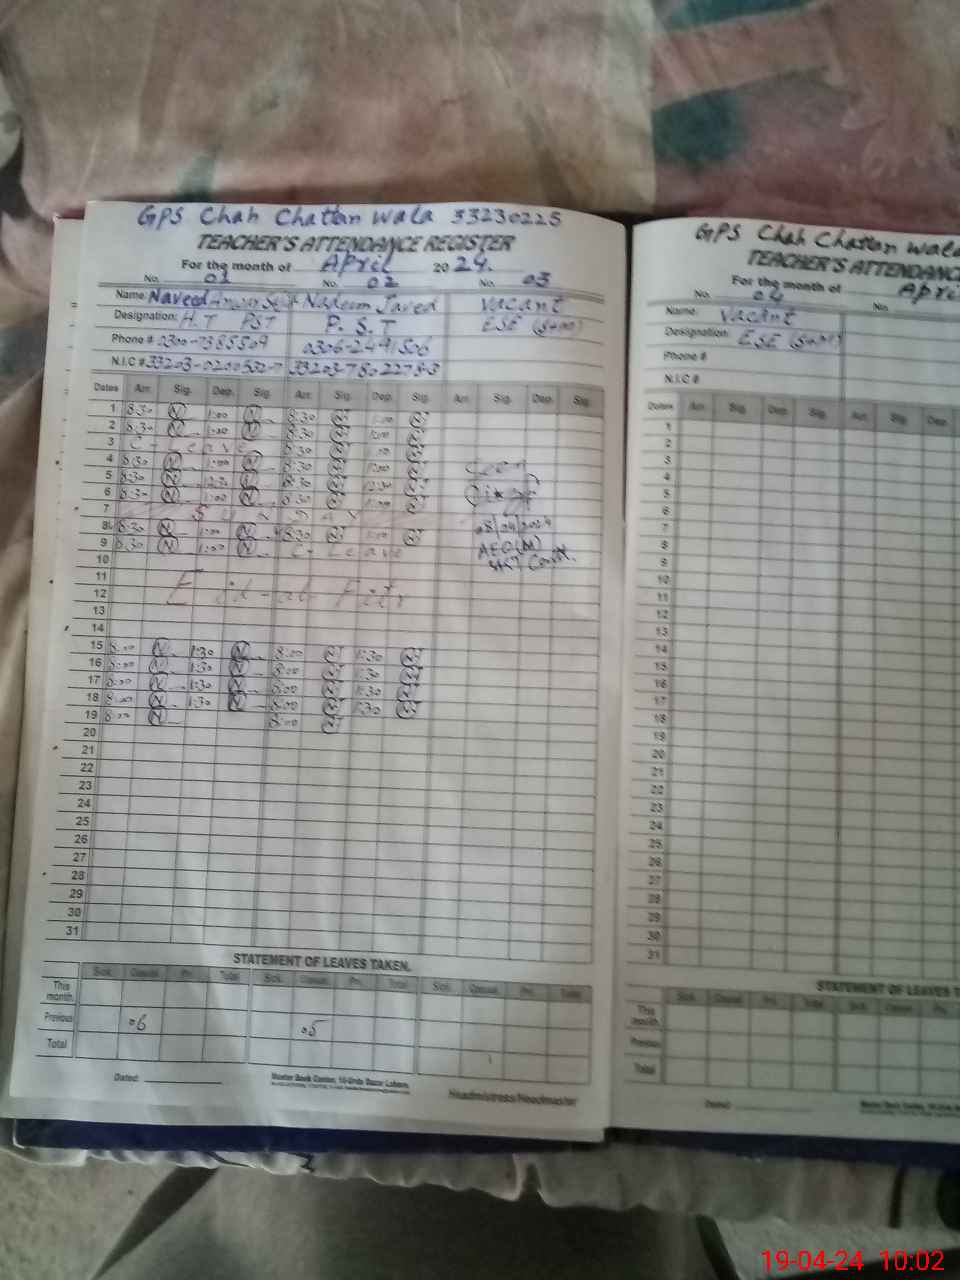 GPS Chah Chattan wala 33230225
TEACHER'S ATTENDANCE REGISTER
For the month of April 2024.
No. 01 No. 02 No. 03
Name: Naveed Nadeem Javed Vacant
Designation: H.T PST P.S.T ESE (S+M)
Phone # 0306-2491506
N.I.C #
Dates Arr. Sig. Dep. Sig. Arr. Sig. Dep. Sig. Arr. Sig. Dep. Sig.
1 8:30 N 1:00 N 8:30 NJ 1:00 NJ
2 8:30 N 1:00 N 8:30 NJ 1:00 NJ
3 C- Leave 8:30 NJ 1:00 NJ
4 8:30 N 1:00 N 8:30 NJ 1:00 NJ
5 8:30 N 12:30 N 8:30 NJ 12:30 NJ
6 8:30 N 1:00 N 8:30 NJ 1:00 NJ
7 SUNDAY
8 8:30 N 1:00 N 8:30 NJ 1:00 NJ
9 8:30 N 1:00 N C- Leave
Seen
08/04/2024
AEO(M)
10
11
12 Eid-ul-Fitr
13
14
15 8:00 N 1:30 N 8:00 NJ 1:30 NJ
16 8:00 N 1:30 N 8:00 NJ 1:30 NJ
17 8:00 N 1:30 N 8:00 NJ 1:30 NJ
18 8:00 N 1:30 N 8:00 NJ 1:30 NJ
19 8:00 N 8:00 NJ
20
21
22
23
24
25
26
27
28
29
30
31
STATEMENT OF LEAVES TAKEN.
Sick Casual Pri. Total Sick Casual Pri. Total Sick Casual Pri. Total
This month.
Previous 06 05
Total
Dated:
Master Book Center, 10-Urdu Bazar Lahore.
Headmistress/Headmaster
GPS Chah Chattan wala
TEACHER'S ATTENDANC
For the month of Apri
No. 04 No.
Name: Vacant
Designation: ESE (S+M)
Phone #
N.I.C #
Dates Arr. Sig. Dep. Sig. Arr. Sig. Dep.
1
2
3
4
5
6
7
8
9
10
11
12
13
14
15
16
17
18
19
20
21
22
23
24
25
26
27
28
29
30
31
STATEMENT OF LEAVES T
Sick Casual Pri. Total Sick Casual Pri.
This month.
Previous
Total
Dated:
19-04-24 10:02